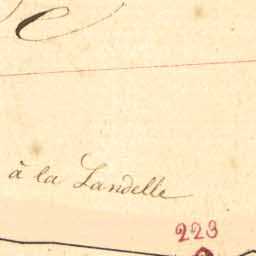 à la Landelle
223